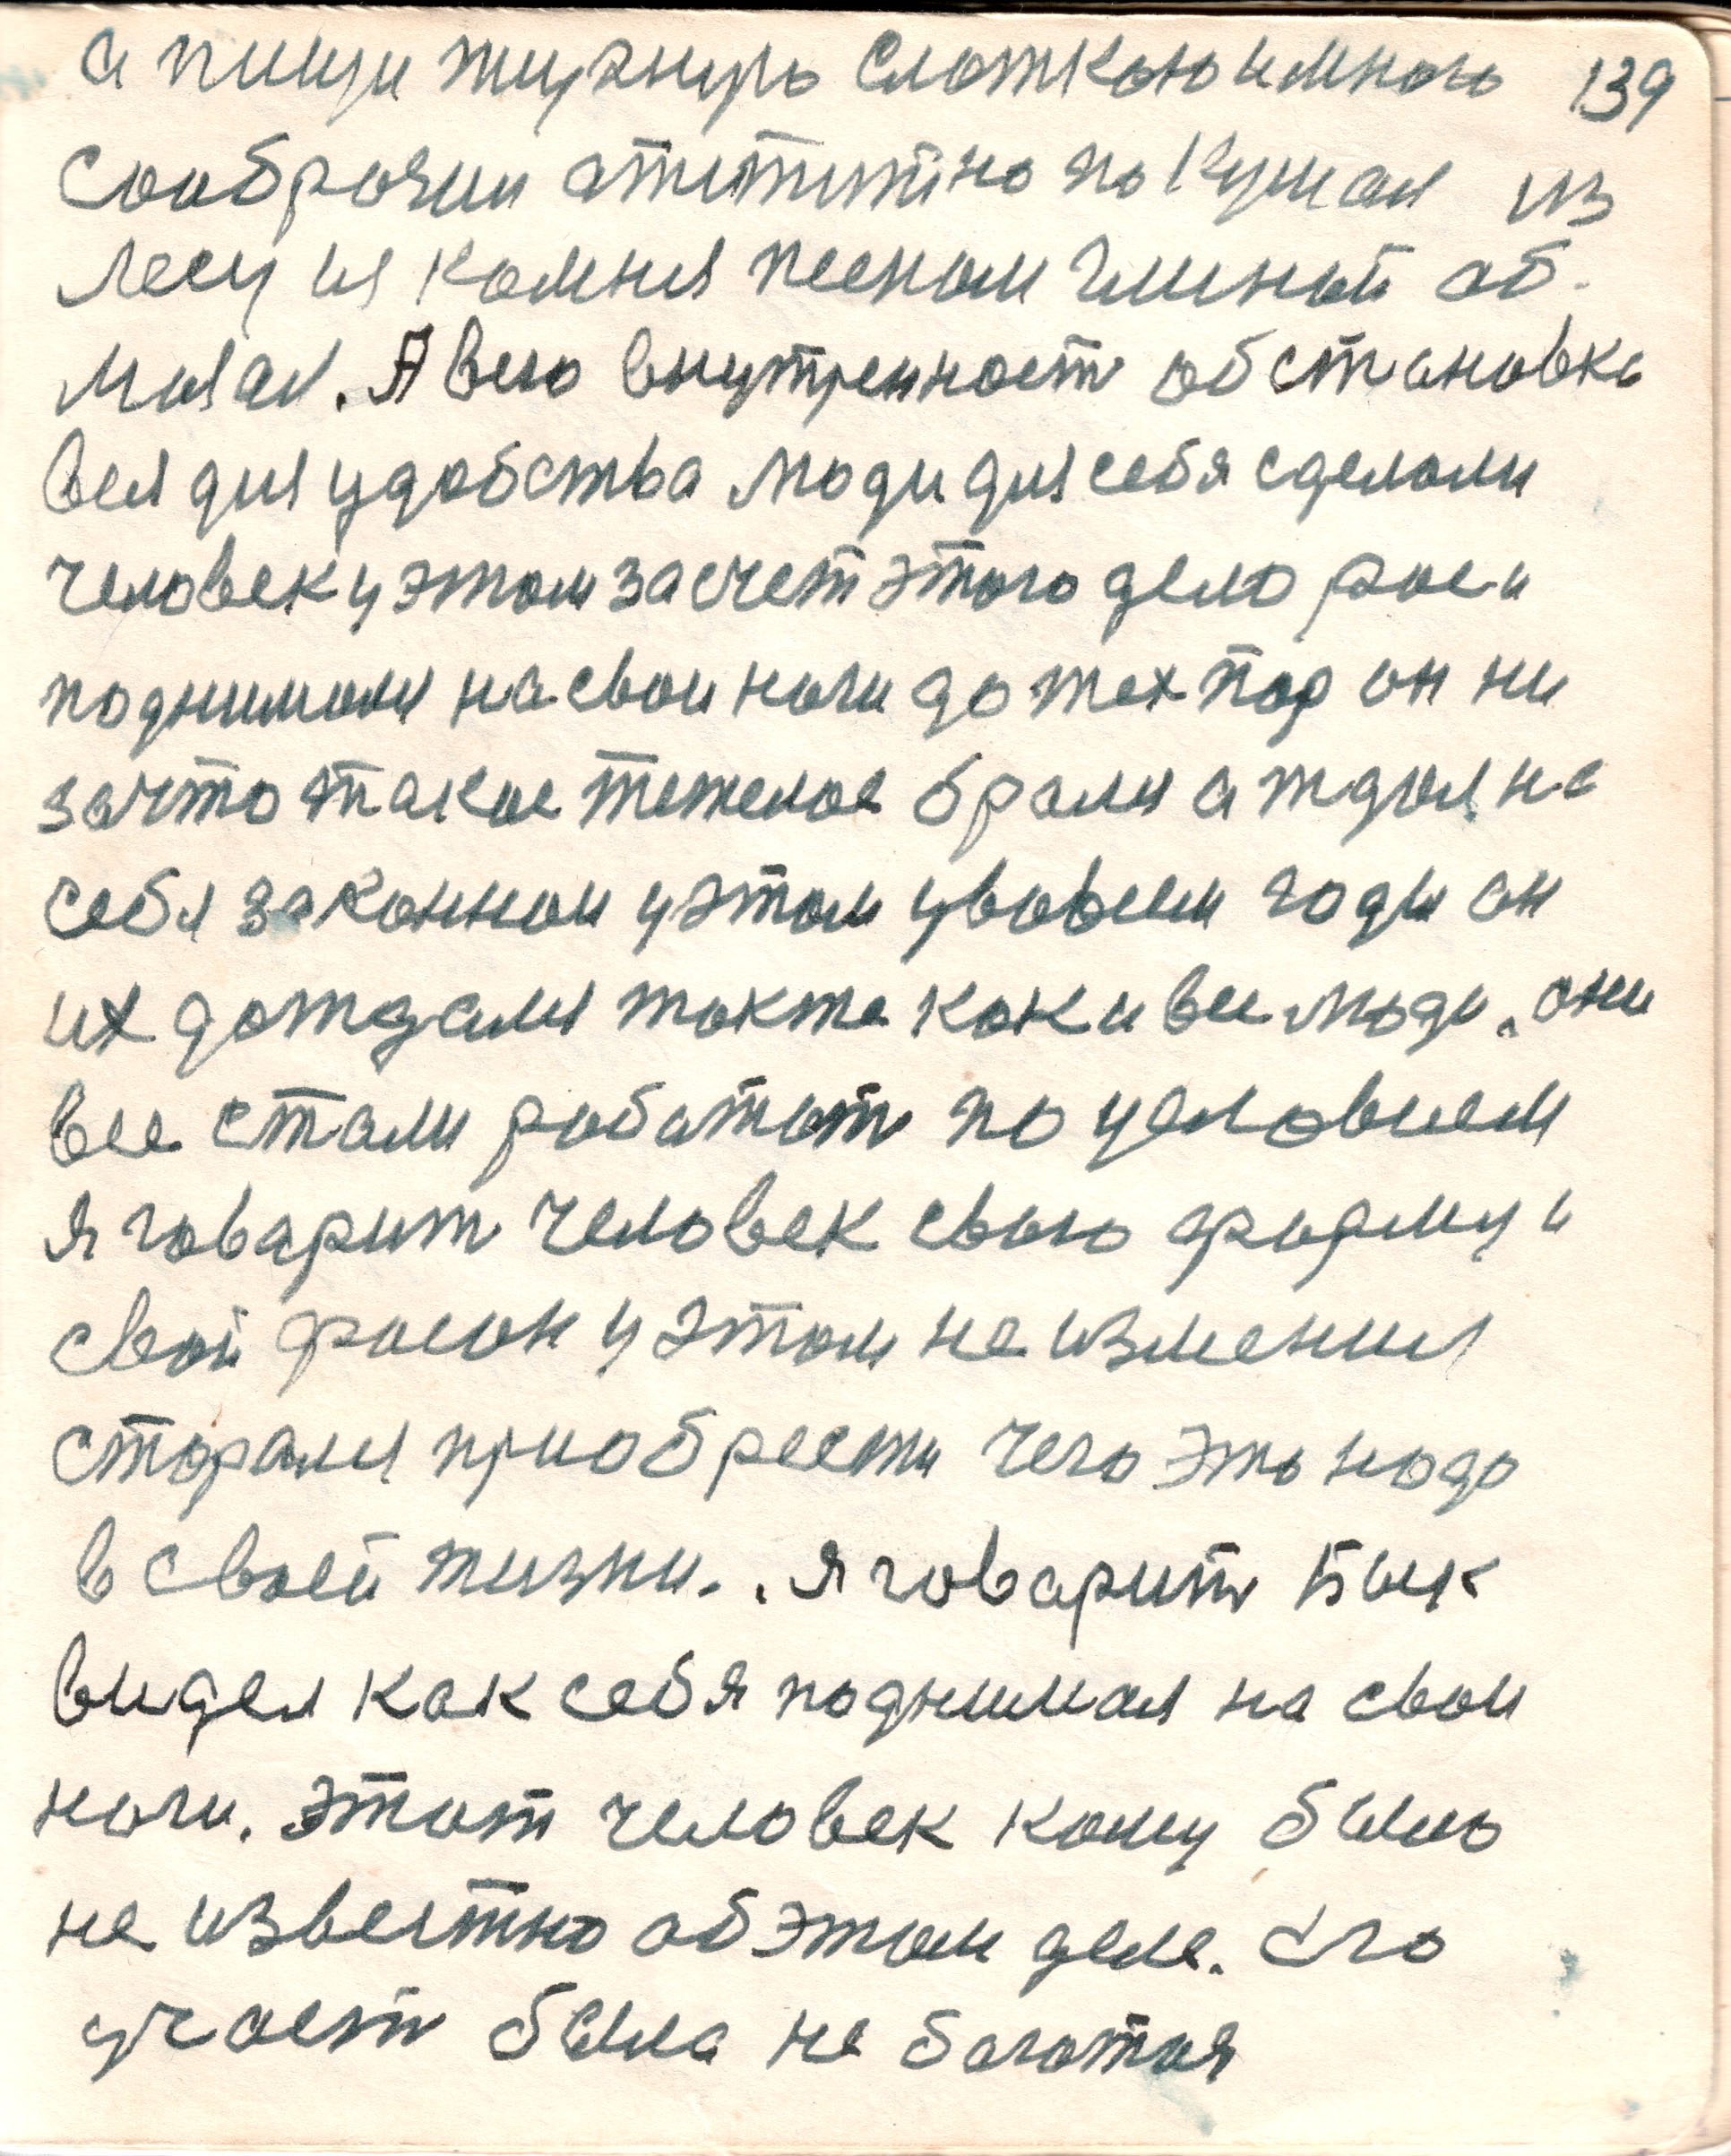 а пищи жирную слоткою и мною 139
сооброзии апититно покушал из
лесу ис комния песком глиной об-
мазал. А всю внутренност обстановка
вся для удобства люди для себя сделали
человек у этом за счет этого дело рос и
поднимался на свои ноги до тех пор он ни
зачто такое тежелое брался а ждал на
себя законнои у этом у во всем годы он
их дождался такжа как и все люди. они
все стали работат по условием
я говарит человек свою форму и
свой фосон у этом не изменил
сторался приобрести чего это надо
в своей жизни. я говарит Бык
видел как себя поднимал на свои
ноги. этот человек кому было
не известно об этом деле. Его
участ была не богатая